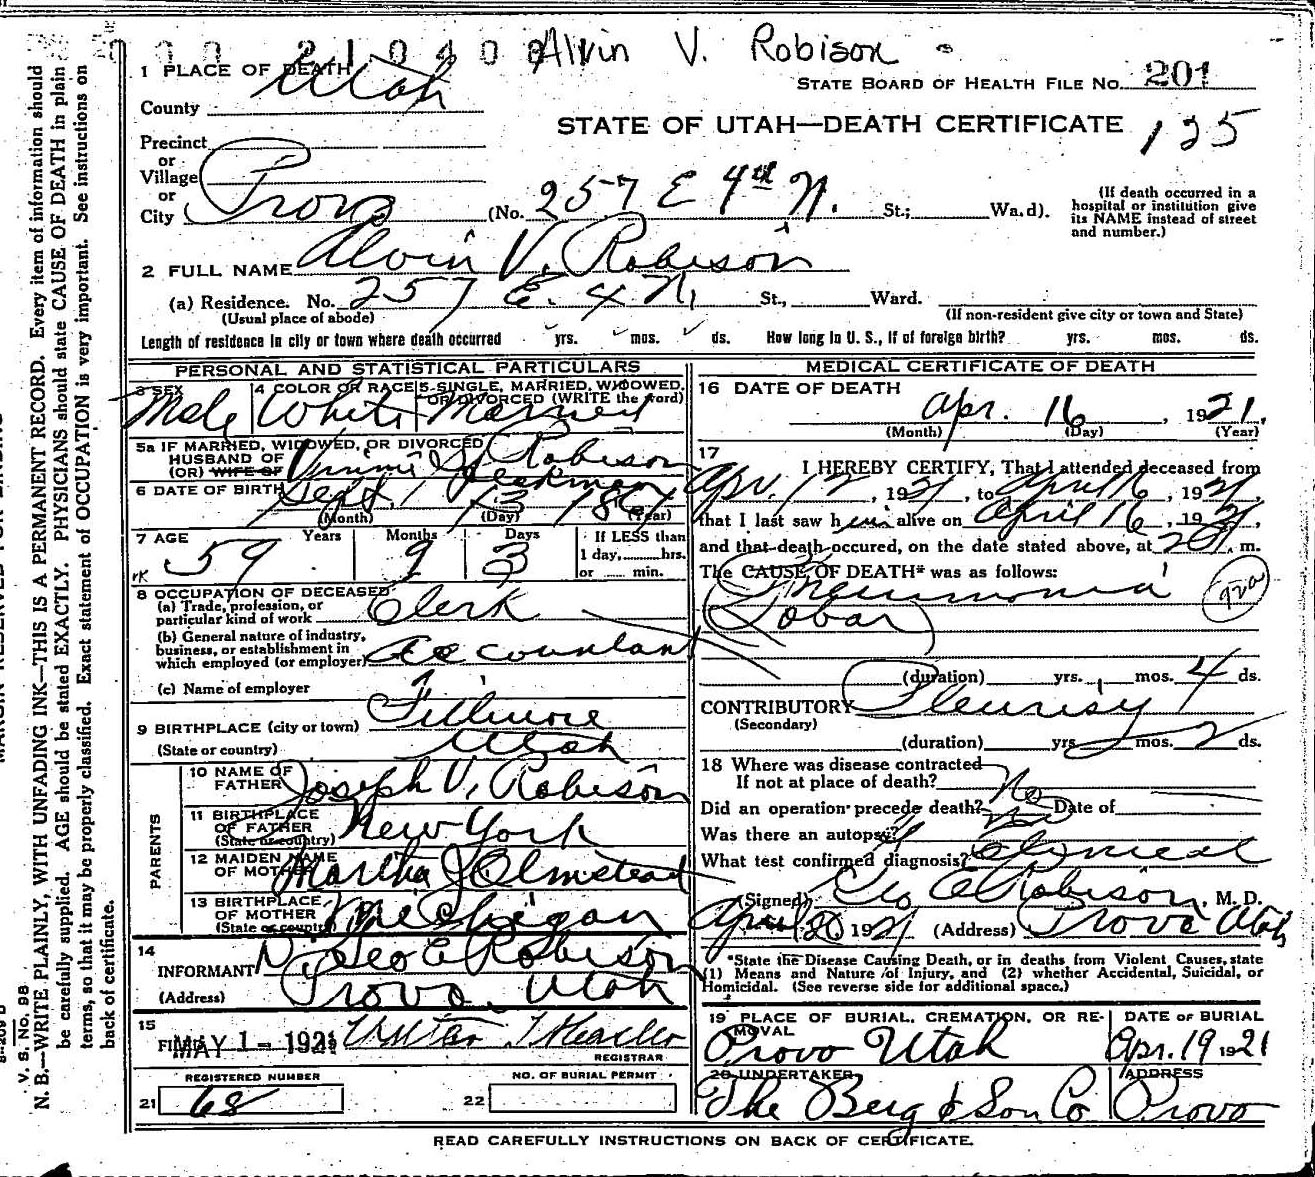 000 210408 Alvin V. Robison
1 PLACE OF DEATH
STATE BOARD OF HEALTH FILE NO. 201
County Utah
STATE OF UTAH—DEATH CERTIFICATE 125
Precinct
or
Village
or
City Provo (No. 257 E 4th N. St.; Wa.d).
(If death occurred in a
hospital or institution give
its NAME instead of street
and number.)
2 FULL NAME Alvin V. Robison
(a) Residence. No. 257 E. 4 N. St., Ward.
(Usual place of abode) (If non-resident give city or town and State)
Length of residence in city or town where death occurred yrs. mos. ds. How long in U. S., if of foreign birth? yrs. mos. ds.
PERSONAL AND STATISTICAL PARTICULARS
3 SEX Male
4 COLOR OR RACE White
5 SINGLE, MARRIED, WIDOWED,
OR DIVORCED (WRITE the word) Married
5a IF MARRIED, WIDOWED, OR DIVORCED
HUSBAND OF Robison
(OR) WIFE OF
6 DATE OF BIRTH Sept. 13 1861
(Month) (Day) (Year)
7 AGE 59 Years 9 Months 3 Days
If LESS than
1 day, hrs.
or min.
8 OCCUPATION OF DECEASED
(a) Trade, profession, or
particular kind of work Clerk
(b) General nature of industry,
business, or establishment in
which employed (or employer) Accountant
(c) Name of employer
9 BIRTHPLACE (city or town) Fillmore
(State or country) Utah
PARENTS
10 NAME OF
FATHER Joseph V. Robison
11 BIRTHPLACE
OF FATHER New York
(State or country)
12 MAIDEN NAME
OF MOTHER Martha J Olmstead
13 BIRTHPLACE
OF MOTHER Michigan
(State or country)
14
INFORMANT Geo E Robison
(Address) Provo Utah
15
FILED MAY 1 - 1921
REGISTRAR
REGISTERED NUMBER
21 68
NO. OF BURIAL PERMIT
22
MEDICAL CERTIFICATE OF DEATH
16 DATE OF DEATH
Apr. 16, 1921.
(Month) (Day) (Year)
17
I HEREBY CERTIFY, That I attended deceased from
Apr. 12, 1921, to April 16, 1921,
that I last saw him alive on April 16, 1921,
and that death occured, on the date stated above, at m.
The CAUSE OF DEATH* was as follows:
Pneumonia
Lobar
92a
(duration) yrs. mos. 4 ds.
CONTRIBUTORY Pleurisy
(Secondary)
(duration) yrs. mos. 2 ds.
18 Where was disease contracted
If not at place of death?
Did an operation precede death? No Date of
Was there an autopsy?
What test confirmed diagnosis? Clinical
(Signed) Geo E Robison, M. D.
April 20 1921 (Address) Provo Utah
*State the Disease Causing Death, or in deaths from Violent Causes, state
(1) Means and Nature of Injury, and (2) whether Accidental, Suicidal, or
Homicidal. (See reverse side for additional space.)
19 PLACE OF BURIAL, CREMATION, OR RE-
MOVAL
Provo Utah
DATE OF BURIAL
Apr. 19 1921
20 UNDERTAKER
The Berg & Son Co
ADDRESS
Provo
READ CAREFULLY INSTRUCTIONS ON BACK OF CERTIFICATE.
V. S. No. 98
N. B.—WRITE PLAINLY, WITH UNFADING INK—THIS IS A PERMANENT RECORD. Every item of information should
be carefully supplied. AGE should be stated EXACTLY. PHYSICIANS should state CAUSE OF DEATH in plain
terms, so that it may be properly classified. Exact statement of OCCUPATION is very important. See instructions on
back of certificate.